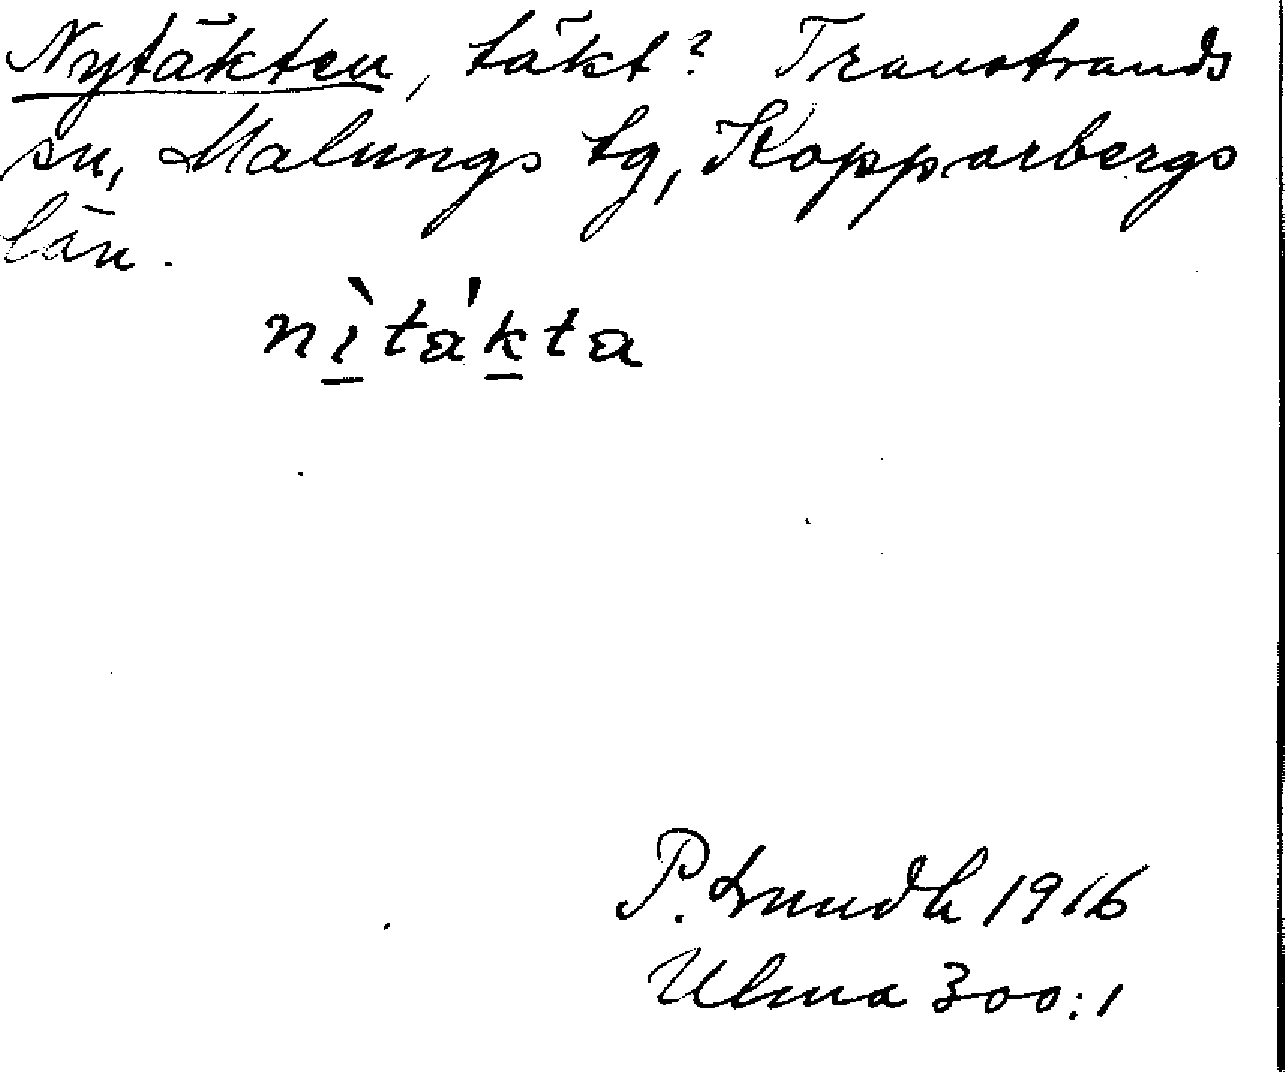 Nytäkten, täkt? Transtrands
sn, Malungs tg, Kopparbergs
län.
nìtákta
P. 1916
Ulma 300:1